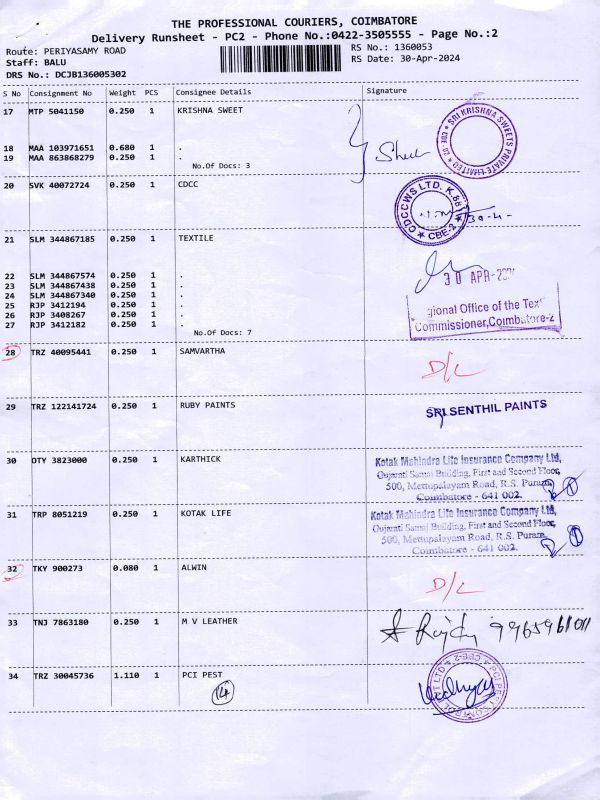 THE PROFESSIONAL COURIERS, COIMBATORE
Delivery Runsheet - PC2 - Phone No.:0422-3505555 - Page No.:2
Route: PERIYASAMY ROAD
RS No.: 1360053
Staff: BALU
RS Date: 30-Apr-2024
DRS No.: DCJB136005302
S No Consignment No Weight PCS Consignee Details Signature
17 MTP 5041150 0.250 1 KRISHNA SWEET
SRI KRISHNA SWEETS PRIVATE LIMITED
18 MAA 103971651 0.680 1 .
19 MAA 863868279 0.250 1 .
No.Of Docs: 3
20 SVK 40072724 0.250 1 CDCC
CDCCWS LTD. K.88
CBE-2
21 SLM 344867185 0.250 1 TEXTILE
22 SLM 344867574 0.250 1 .
23 SLM 344867438 0.250 1 .
24 SLM 344867340 0.250 1 .
25 RJP 3412194 0.250 1 .
26 RJP 3408267 0.250 1 .
27 RJP 3412182 0.250 1 .
No.Of Docs: 7
30 APR
gional Office of the Text
Commissioner,Coimbatore-2
28 TRZ 40095441 0.250 1 SAMVARTHA
D/L
29 TRZ 122141724 0.250 1 RUBY PAINTS
SRI SENTHIL PAINTS
30 OTY 3823000 0.250 1 KARTHICK
Kotak Mahindra Life Insurance Company Ltd,
Gujarati Samaj Building, First and Second Floor,
500, Mettupalayam Road, R.S. Puram,
Coimbatore - 641 002.
31 TRP 8051219 0.250 1 KOTAK LIFE
Kotak Mahindra Life Insurance Company Ltd,
Gujarati Samaj Building, First and Second Floor,
500, Mettupalayam Road, R.S. Puram,
Coimbatore - 641 002.
32 TKY 900273 0.080 1 ALWIN
D/L
33 TNJ 7863180 0.250 1 M V LEATHER
34 TRZ 30045736 1.110 1 PCI PEST
14